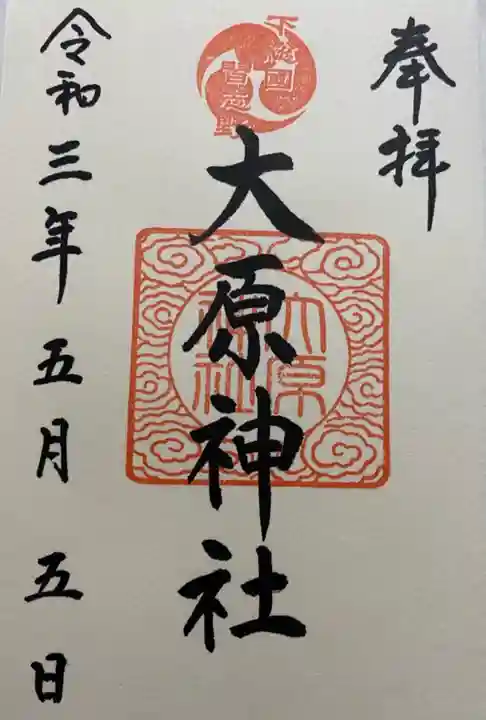 奉拝
下総國
習志野
大原神社
大原
神社
令和三年五月五日